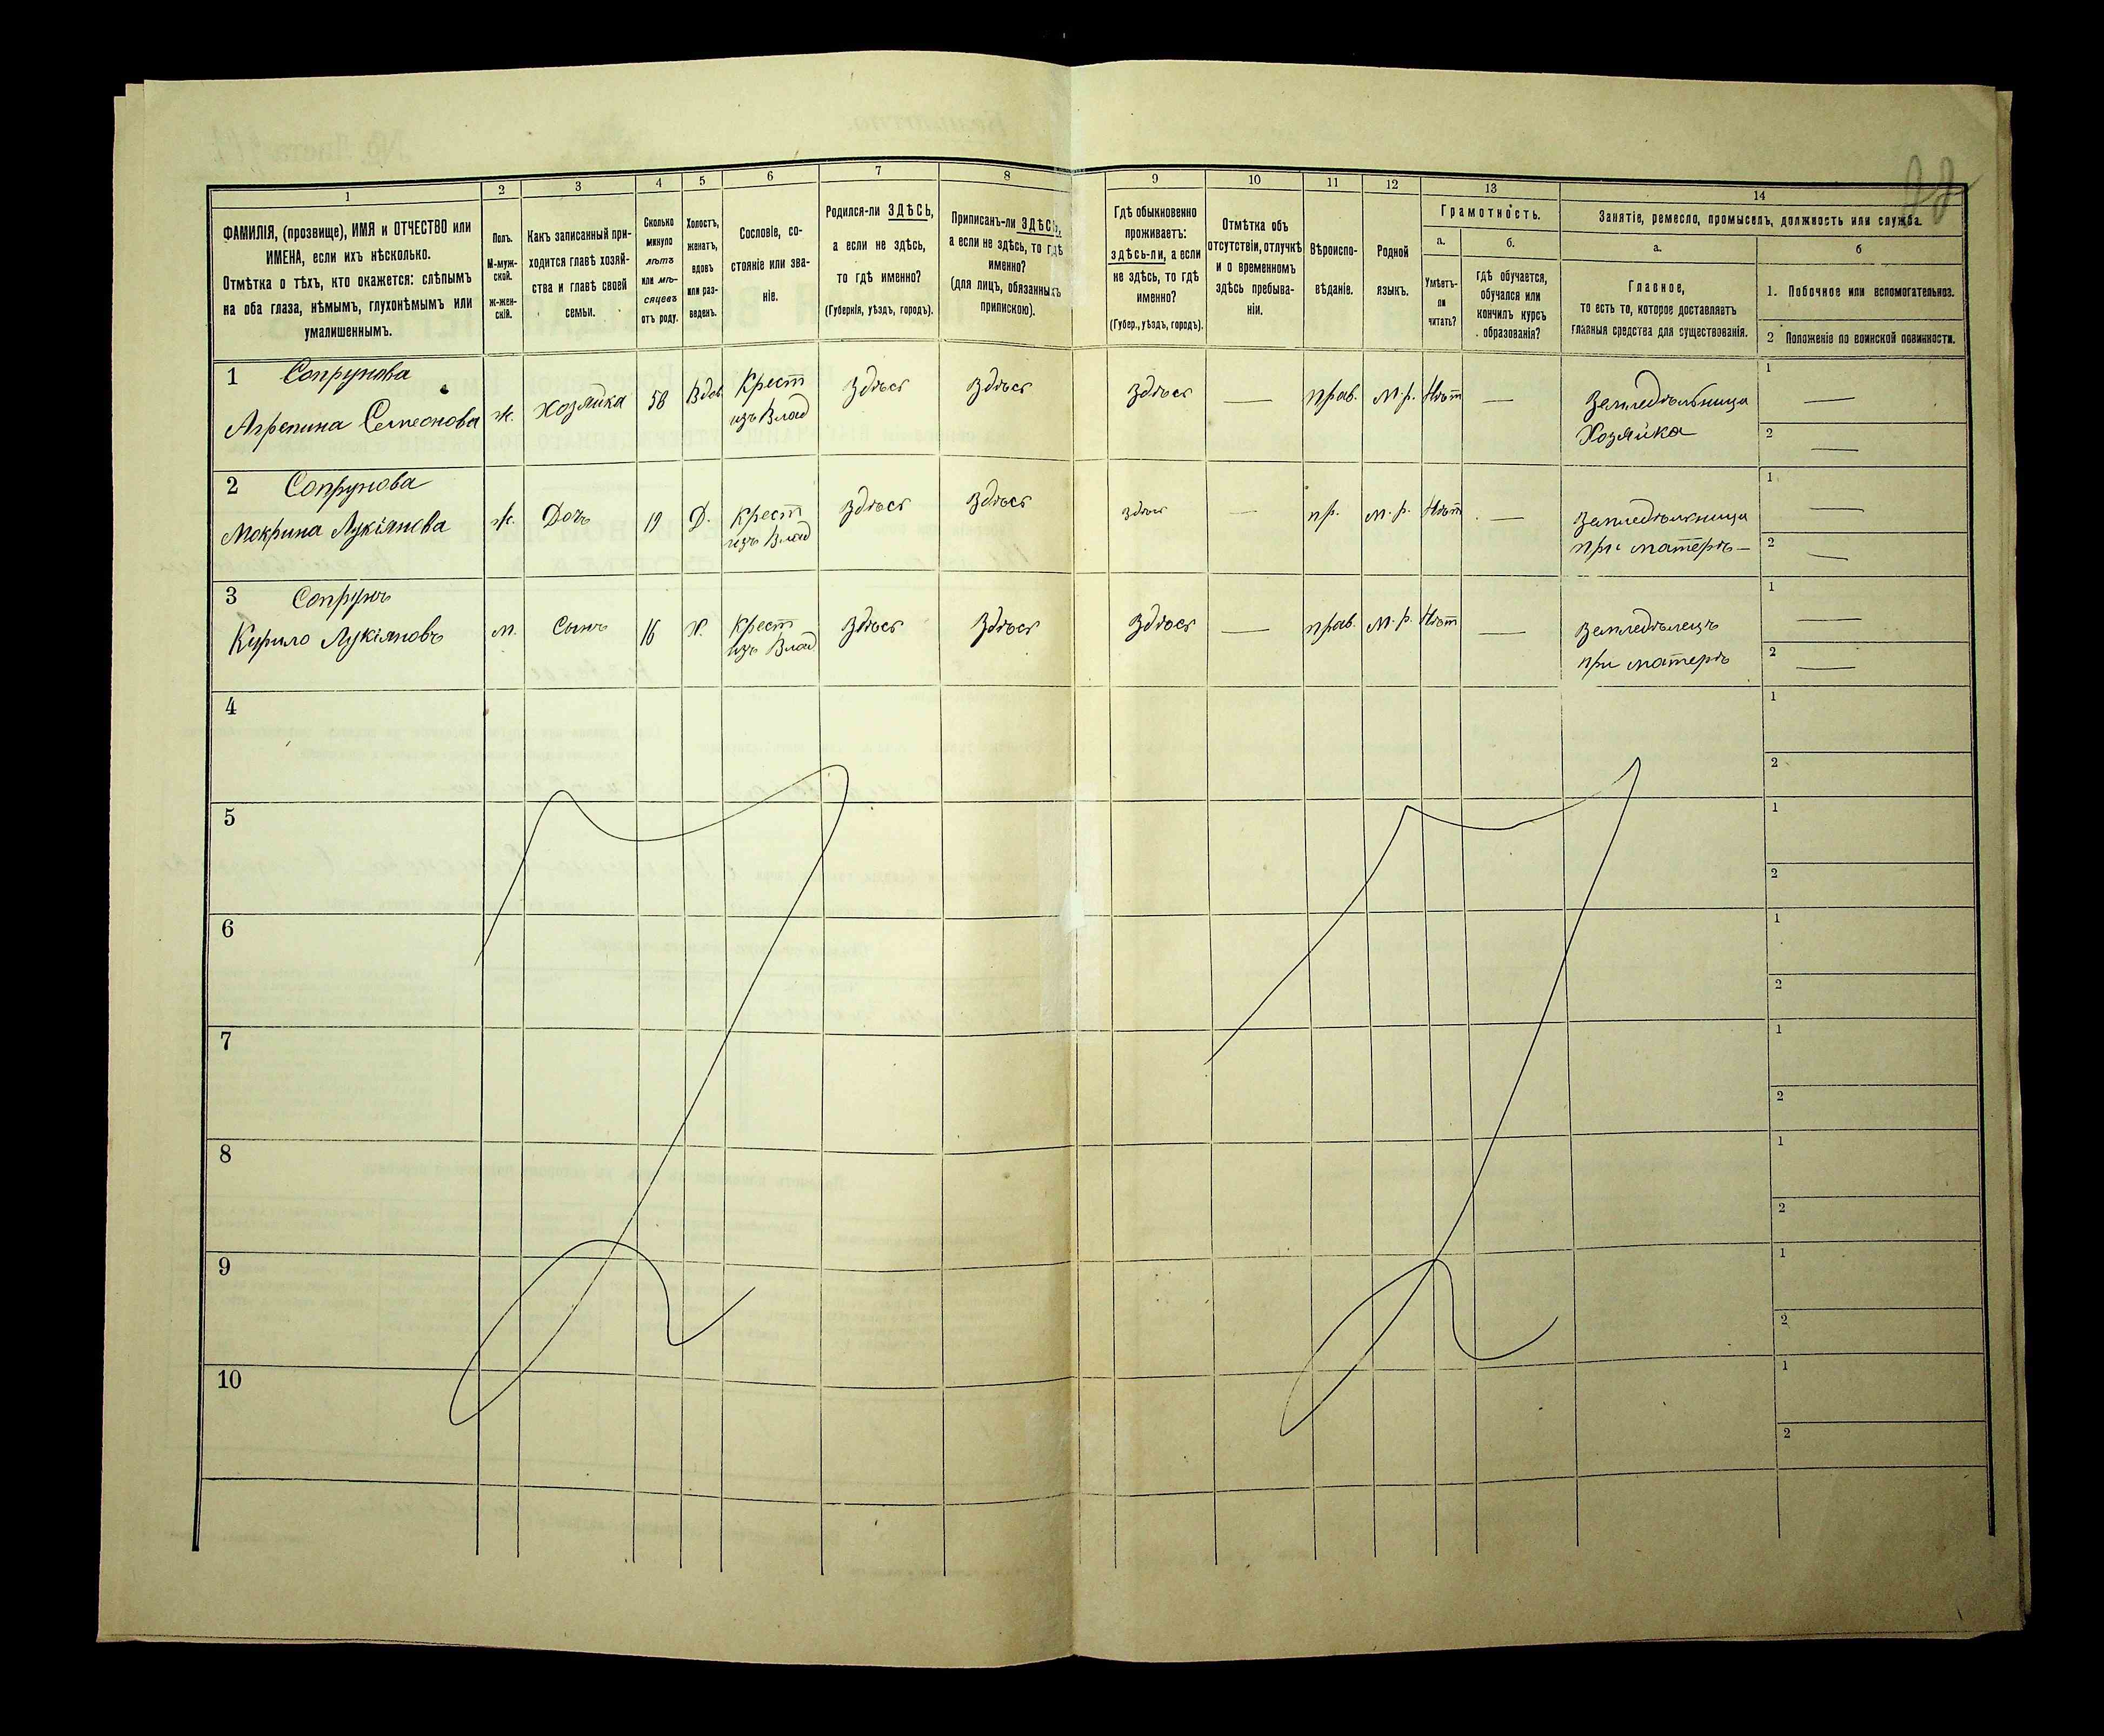 1 2 3 4 5 6 7 8 9 10 11 12 13 14
ФАМИЛІЯ, (прозвище), ИМЯ и ОТЧЕСТВО или
ИМЕНА, если ихъ нѣсколько.
Отмѣтка о тѣхъ, кто окажется: слѣпымъ
на оба глаза, нѣмымъ, глухонѣмымъ или
умалишеннымъ.
Полъ.
М-муж-
ской.
ж-жен-
скій.
Какъ записанный при-
ходится главѣ хозяй-
ства и главѣ своей
семьи.
Сколько
минуло
лѣтъ
или мѣ-
сяцевъ
отъ роду.
Холостъ,
женатъ,
вдовъ
или раз-
веденъ.
Сословіе, со-
стояніе или зва-
ніе.
Родился-ли ЗДѢСЬ,
а если не здѣсь,
то гдѣ именно?
(Губернія, уѣздъ, городъ).
Приписанъ-ли ЗДѢСЬ,
а если не здѣсь, то гдѣ
именно?
(для лицъ, обязанныхъ
припискою).
Гдѣ обыкновенно
проживаетъ:
здѣсь-ли, а если
не здѣсь, то гдѣ
именно?
(Губер., уѣздъ, городъ).
Отмѣтка объ
отсутствіи, отлучкѣ
и о временномъ
здѣсь пребыва-
ніи.
Вѣроиспо-
вѣданіе.
Родной
языкъ.
Грамотность.
а.
Умѣетъ-
ли
читать?
б.
гдѣ обучается,
обучался или
кончилъ курсъ
образованія?
Занятіе, ремесло, промыселъ, должность или служба.
а.
Главное,
то есть то, которое доставляетъ
главныя средства для существованія.
б
1. Побочное или вспомогательное.
2 Положеніе по воинской повинности.
1 Сопрунова
Агрепина Семеонова ж. Хозяйка 58 Вдов. Крест
изъ Влад Здѣсь Здѣсь Здѣсь — прав. м.р. Нѣтъ — Земледѣльница
Хозяйка
1 —
2 —
2 Сопрунова
Мокрина Лукіянова ж. Дочь 19 Д. Крест
изъ Влад Здѣсь Здѣсь здѣсь — пр. м.р. Нѣтъ — Земледѣльница
при матерѣ —
1 —
2 —
3 Сопрунъ
Курило Лукіяновъ м. Сынъ 16 Х. Крест
изъ Влад Здѣсь Здѣсь Здѣсь — прав. м.р. Нѣтъ — Земледѣлецъ
при матерѣ
1 —
2 —
4
1
2
5
1
2
6
1
2
7
1
2
8
1
2
9
1
2
10
1
2